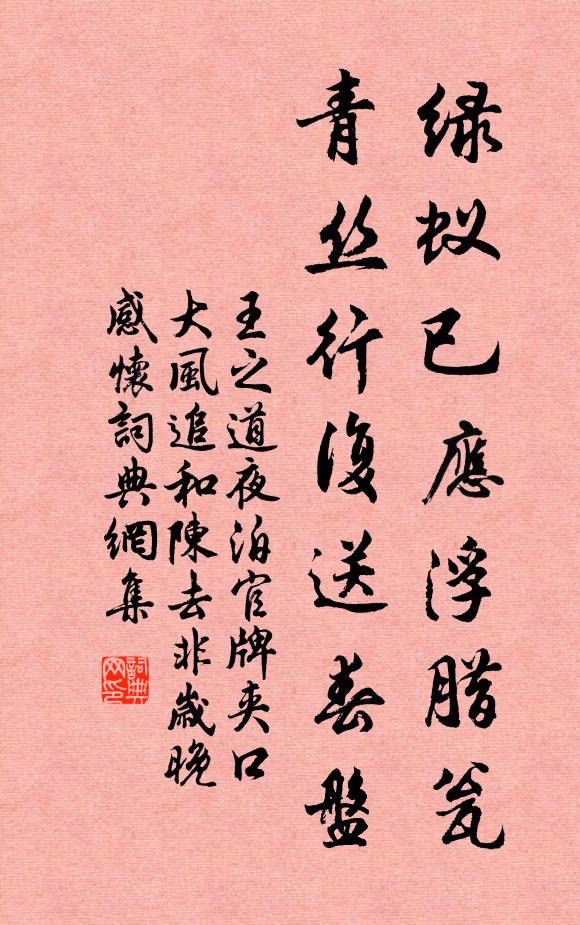 绿蚁已應浮腊瓮
青丝行復送春盤
王之道夜泊官牌夾口
大風追和陳去非歲晚
感懷詞典網集
詞典网印